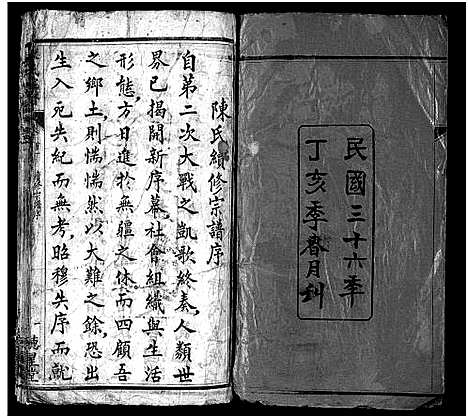 民國三十六季
丁亥季春月刊
陳氏續修宗譜序
自第二次大戰之凱歌終奏人類世
界已揭開新序幕社會組織與生活
形態方日進於無疆之休而四顧吾
之鄉土則惴惴然以大難之餘恐出
生入死失紀而無考昭穆失序而就